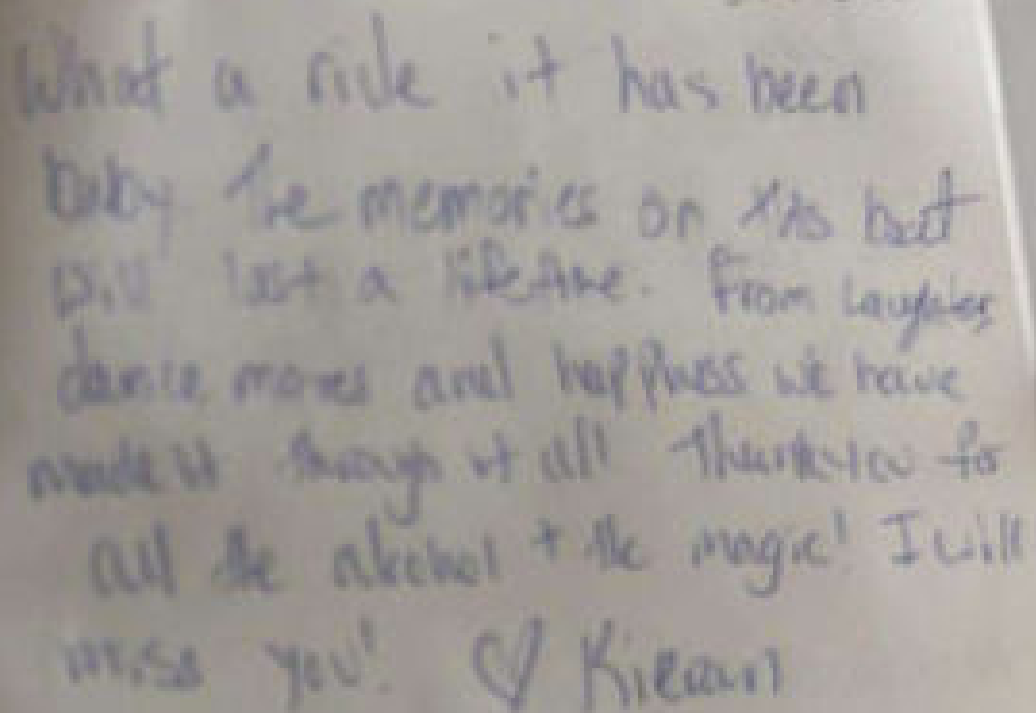 What a ride it has been
baby The memories on this boat
Will last a lifetime. From laughter,
dance moves and happiness we have
made it through it all Thankyou for
all the alcohol + the magic! I will
miss you! ♡ Kieran